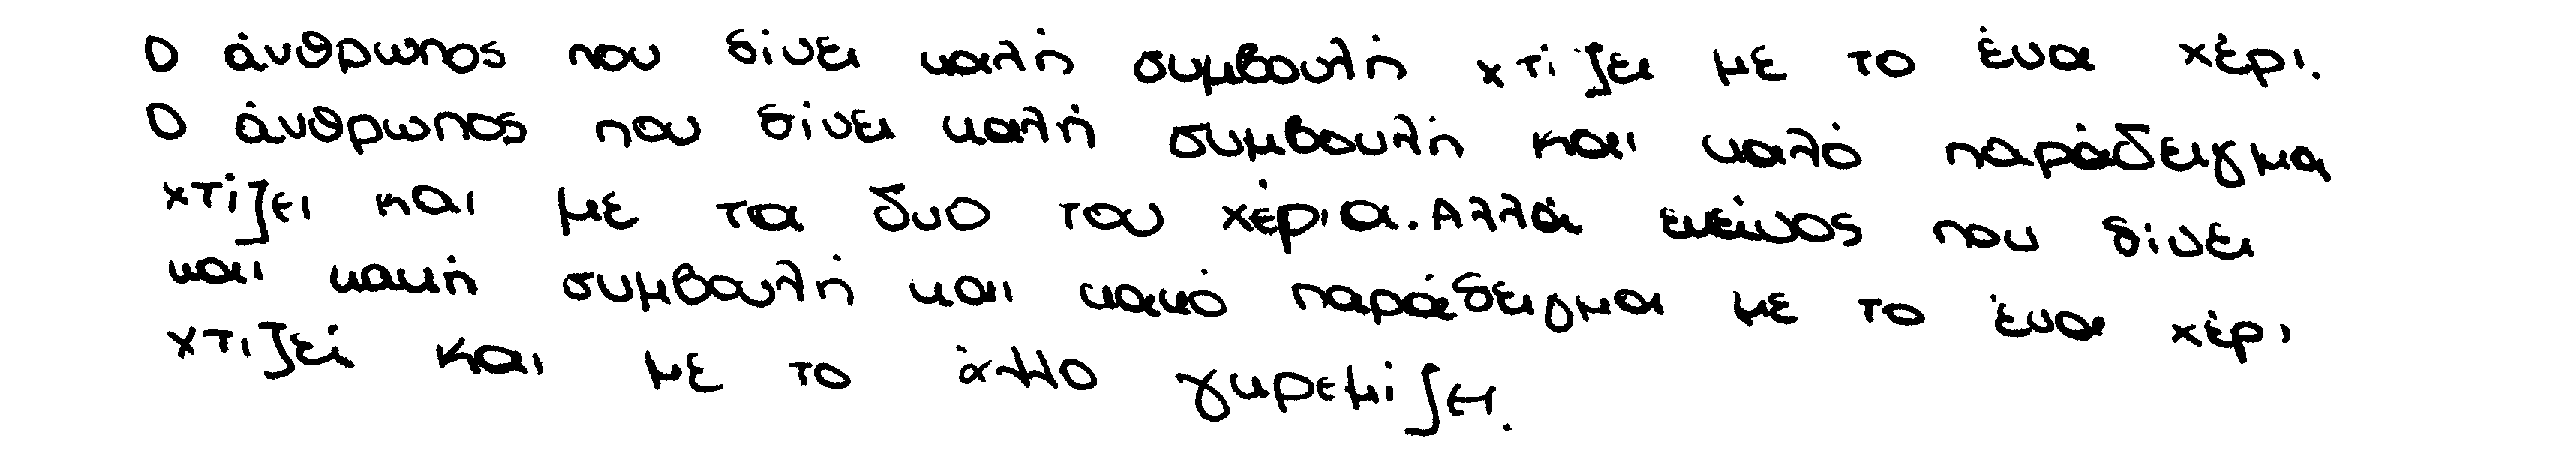 Ο άνθρωπος που δίνει καλή συμβουλή χτίζει με το ένα χέρι.
Ο άνθρωπος που δίνει καλή συμβουλή και καλό παράδειγμα
χτίζει και με τα δυο του χέρια. Αλλά εκείνος που δίνει
και κακή συμβουλή και κακό παράδειγμα με το ένα χέρι
χτιζεί και με το άλλο γκρεμίζει.